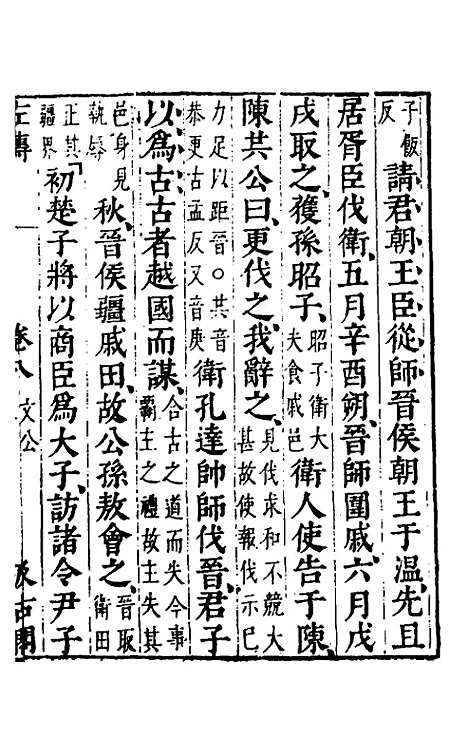 子飯反請君朝王臣從師晉侯朝王于溫先且
居胥臣伐衛五月辛酉朔晉師圍戚六月戊
戌取之獲孫昭子昭子衛大夫食戚邑衛人使告于陳
陳共公曰更伐之我辭之見伐求和不競大甚故使報伐示已
力足以距晉○共音恭更古孟反又音庚衛孔達帥師伐晉君子
以爲古古者越國而謀合古之道而失今事霸主之禮故主失其
邑身見執辱秋晉侯疆戚田故公孫敖會之晉取衛田
正其疆界初楚子將以商臣爲大子訪諸令尹子
左傳 卷八 文公 汲古閣